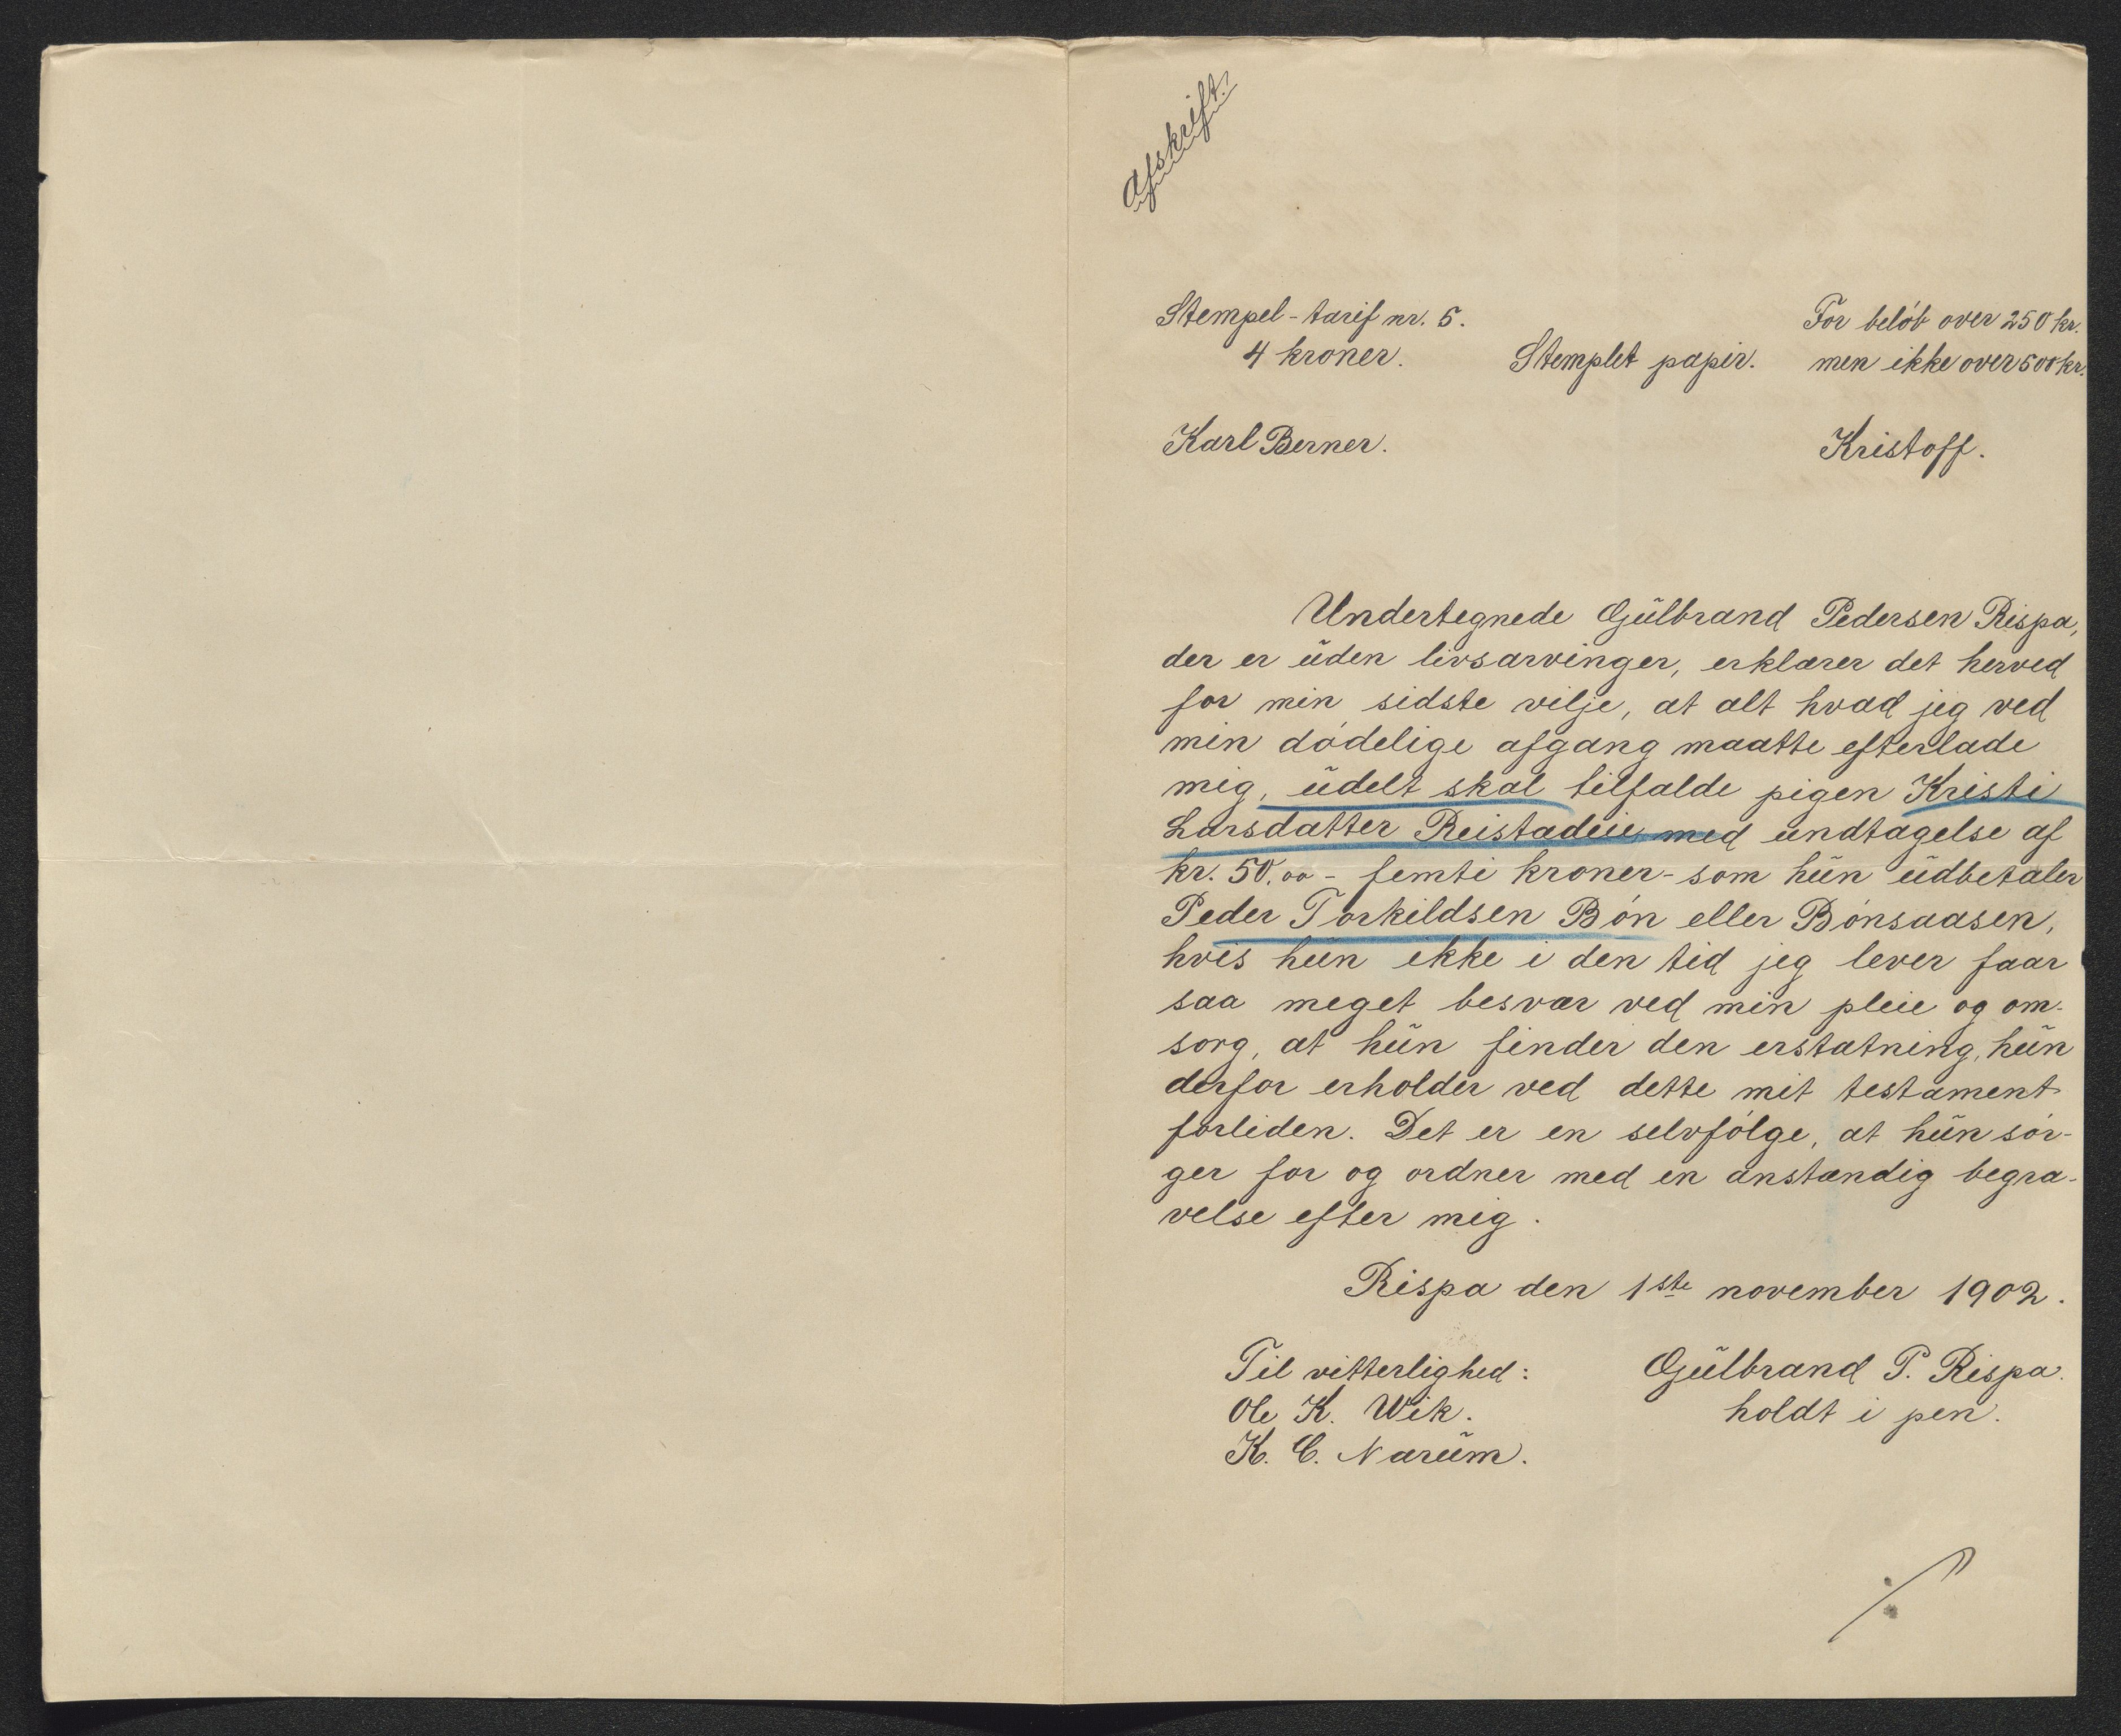 Afskrift.
Stempel-tarif nr. 5.
4 kroner.
Stemplet papir.
For beløb over 250 kr.
men ikke over 500 kr.
Karl Berner.
Kristoff.
Undertegnede Gulbrand Pedersen Rispa,
der er uden livsarvinger, erklærer det herved
for min sidste vilje, at alt hvad jeg ved
min dødelige afgang maatte efterlade
mig, udelt skal tilfalde pigen Kristi
Larsdatter Reistadeie med undtagelse af
kr. 50.00 - femti kroner - som hun udbetaler
Peder Torkildsen Bøn eller Bønsaasen,
hvis hun ikke i den tid jeg lever faar
saa meget besvær ved min pleie og om-
sorg, at hun finder den erstatning, hun
derfor erholder ved dette mit testament
forliden. Det er en selvfølge, at hun sør-
ger for og ordner med en anstændig begra-
velse efter mig.
Rispa den 1ste november 1902.
Til vitterlighed:
Ole K. Wik.
K. C. Narum.
Gulbrand P. Rispa.
holdt i pen.